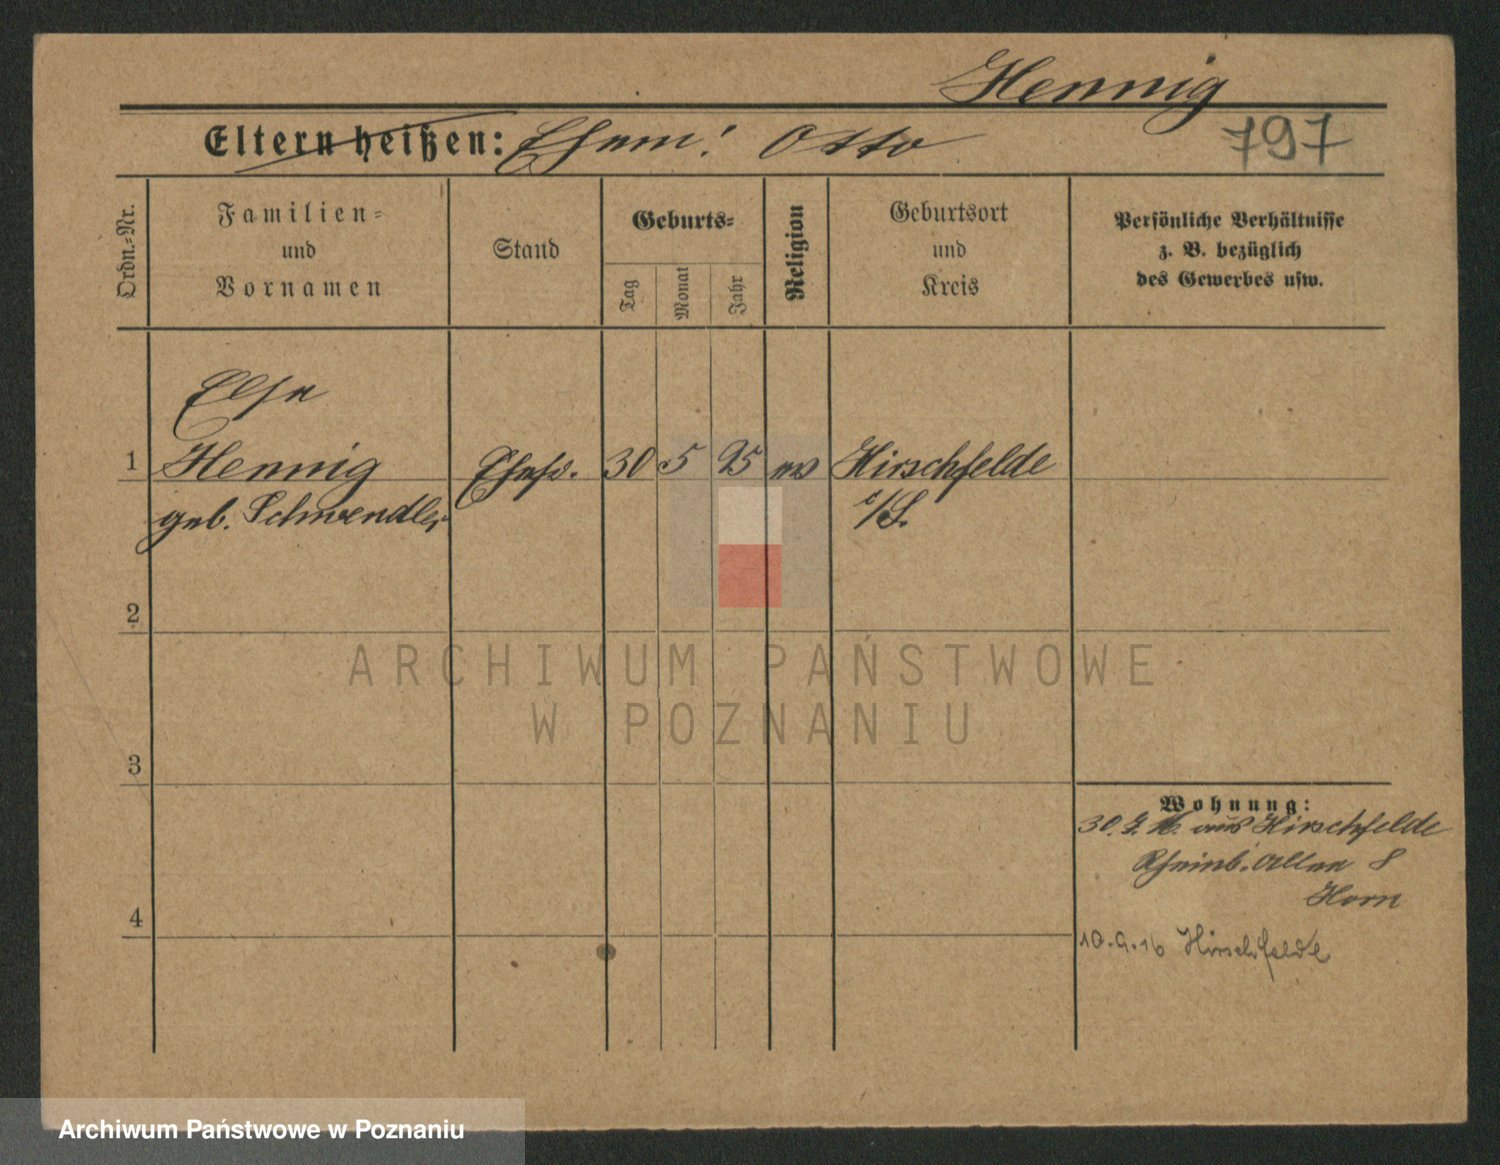 Hennig
Eltern heißen: Ehem: Otto
797
Ordn.-Nr.
Familien-
und
Vornamen
Stand
Geburts-
Tag
Monat
Jahr
Religion
Geburtsort
und
Kreis
Persönliche Verhältnisse
z. B. bezüglich
des Gewerbes usw.
Else
1 Hennig Ehefr. 30 5 95 ev Hirschfelde
geb. Schwendler i/S.
2
ARCHIWUM PAŃSTWOWE
W POZNANIU
3
Wohnung:
30. 7. 16. aus Hirschfelde
Rheinb. Allee 8
Horn
4
10.9.16 Hirschfelde
Archiwum Państwowe w Poznaniu